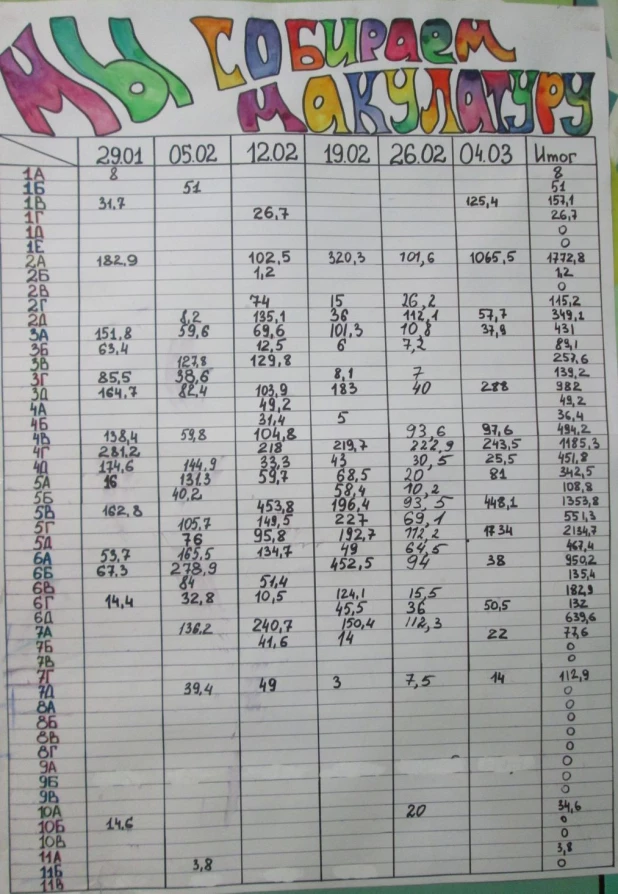 МЫ СОБИРАЕМ
МАКУЛАТУРУ
29.01 05.02 12.02 19.02 26.02 04.03 Итог
1А 8 8
1Б 51 51
1В 31,7 125,4 157,1
1Г 26,7 26,7
1Д 0
1Е 0
2А 182,9 102,5 320,3 101,6 1065,5 1772,8
2Б 1,2 1,2
2В 0
2Г 74 15 26,2 115,2
2Д 8,2 135,1 36 112,1 57,7 349,1
3А 151,8 59,6 69,6 101,3 10,8 37,9 431
3Б 63,4 12,5 6 7,2 89,1
3В 127,8 129,8 257,6
3Г 85,5 38,6 8,1 7 139,2
3Д 164,7 82,4 103,9 183 40 288 982
4А 49,2 49,2
4Б 31,4 5 36,4
4В 138,4 59,8 104,8 93,6 97,6 494,2
4Г 281,2 218 219,7 222,9 243,5 1185,3
4Д 174,6 144,9 33,3 43 30,5 25,5 451,8
5А 16 131,3 59,7 68,5 20 81 342,5
5Б 40,2 58,4 10,2 108,8
5В 162,8 453,8 196,4 93,5 448,1 1353,8
5Г 105,7 149,5 227 69,1 551,3
5Д 76 95,8 192,7 112,2 1734 2134,7
6А 53,7 165,5 134,7 49 64,5 467,4
6Б 67,3 278,9 452,5 94 38 950,2
6В 84 51,4 135,4
6Г 14,4 32,8 10,5 124,1 15,5 182,9
6Д 45,5 36 50,5 132
7А 136,2 240,7 150,4 112,3 639,6
7Б 41,6 14 22 77,6
7В 0
7Г 0
7Д 39,4 49 3 7,5 14 112,9
8А 0
8Б 0
8В 0
8Г 0
9А 0
9Б 0
9В 0
10А 0
10Б 14,6 20 34,6
10В 0
11А 0
11Б 3,8 3,8
11В 0